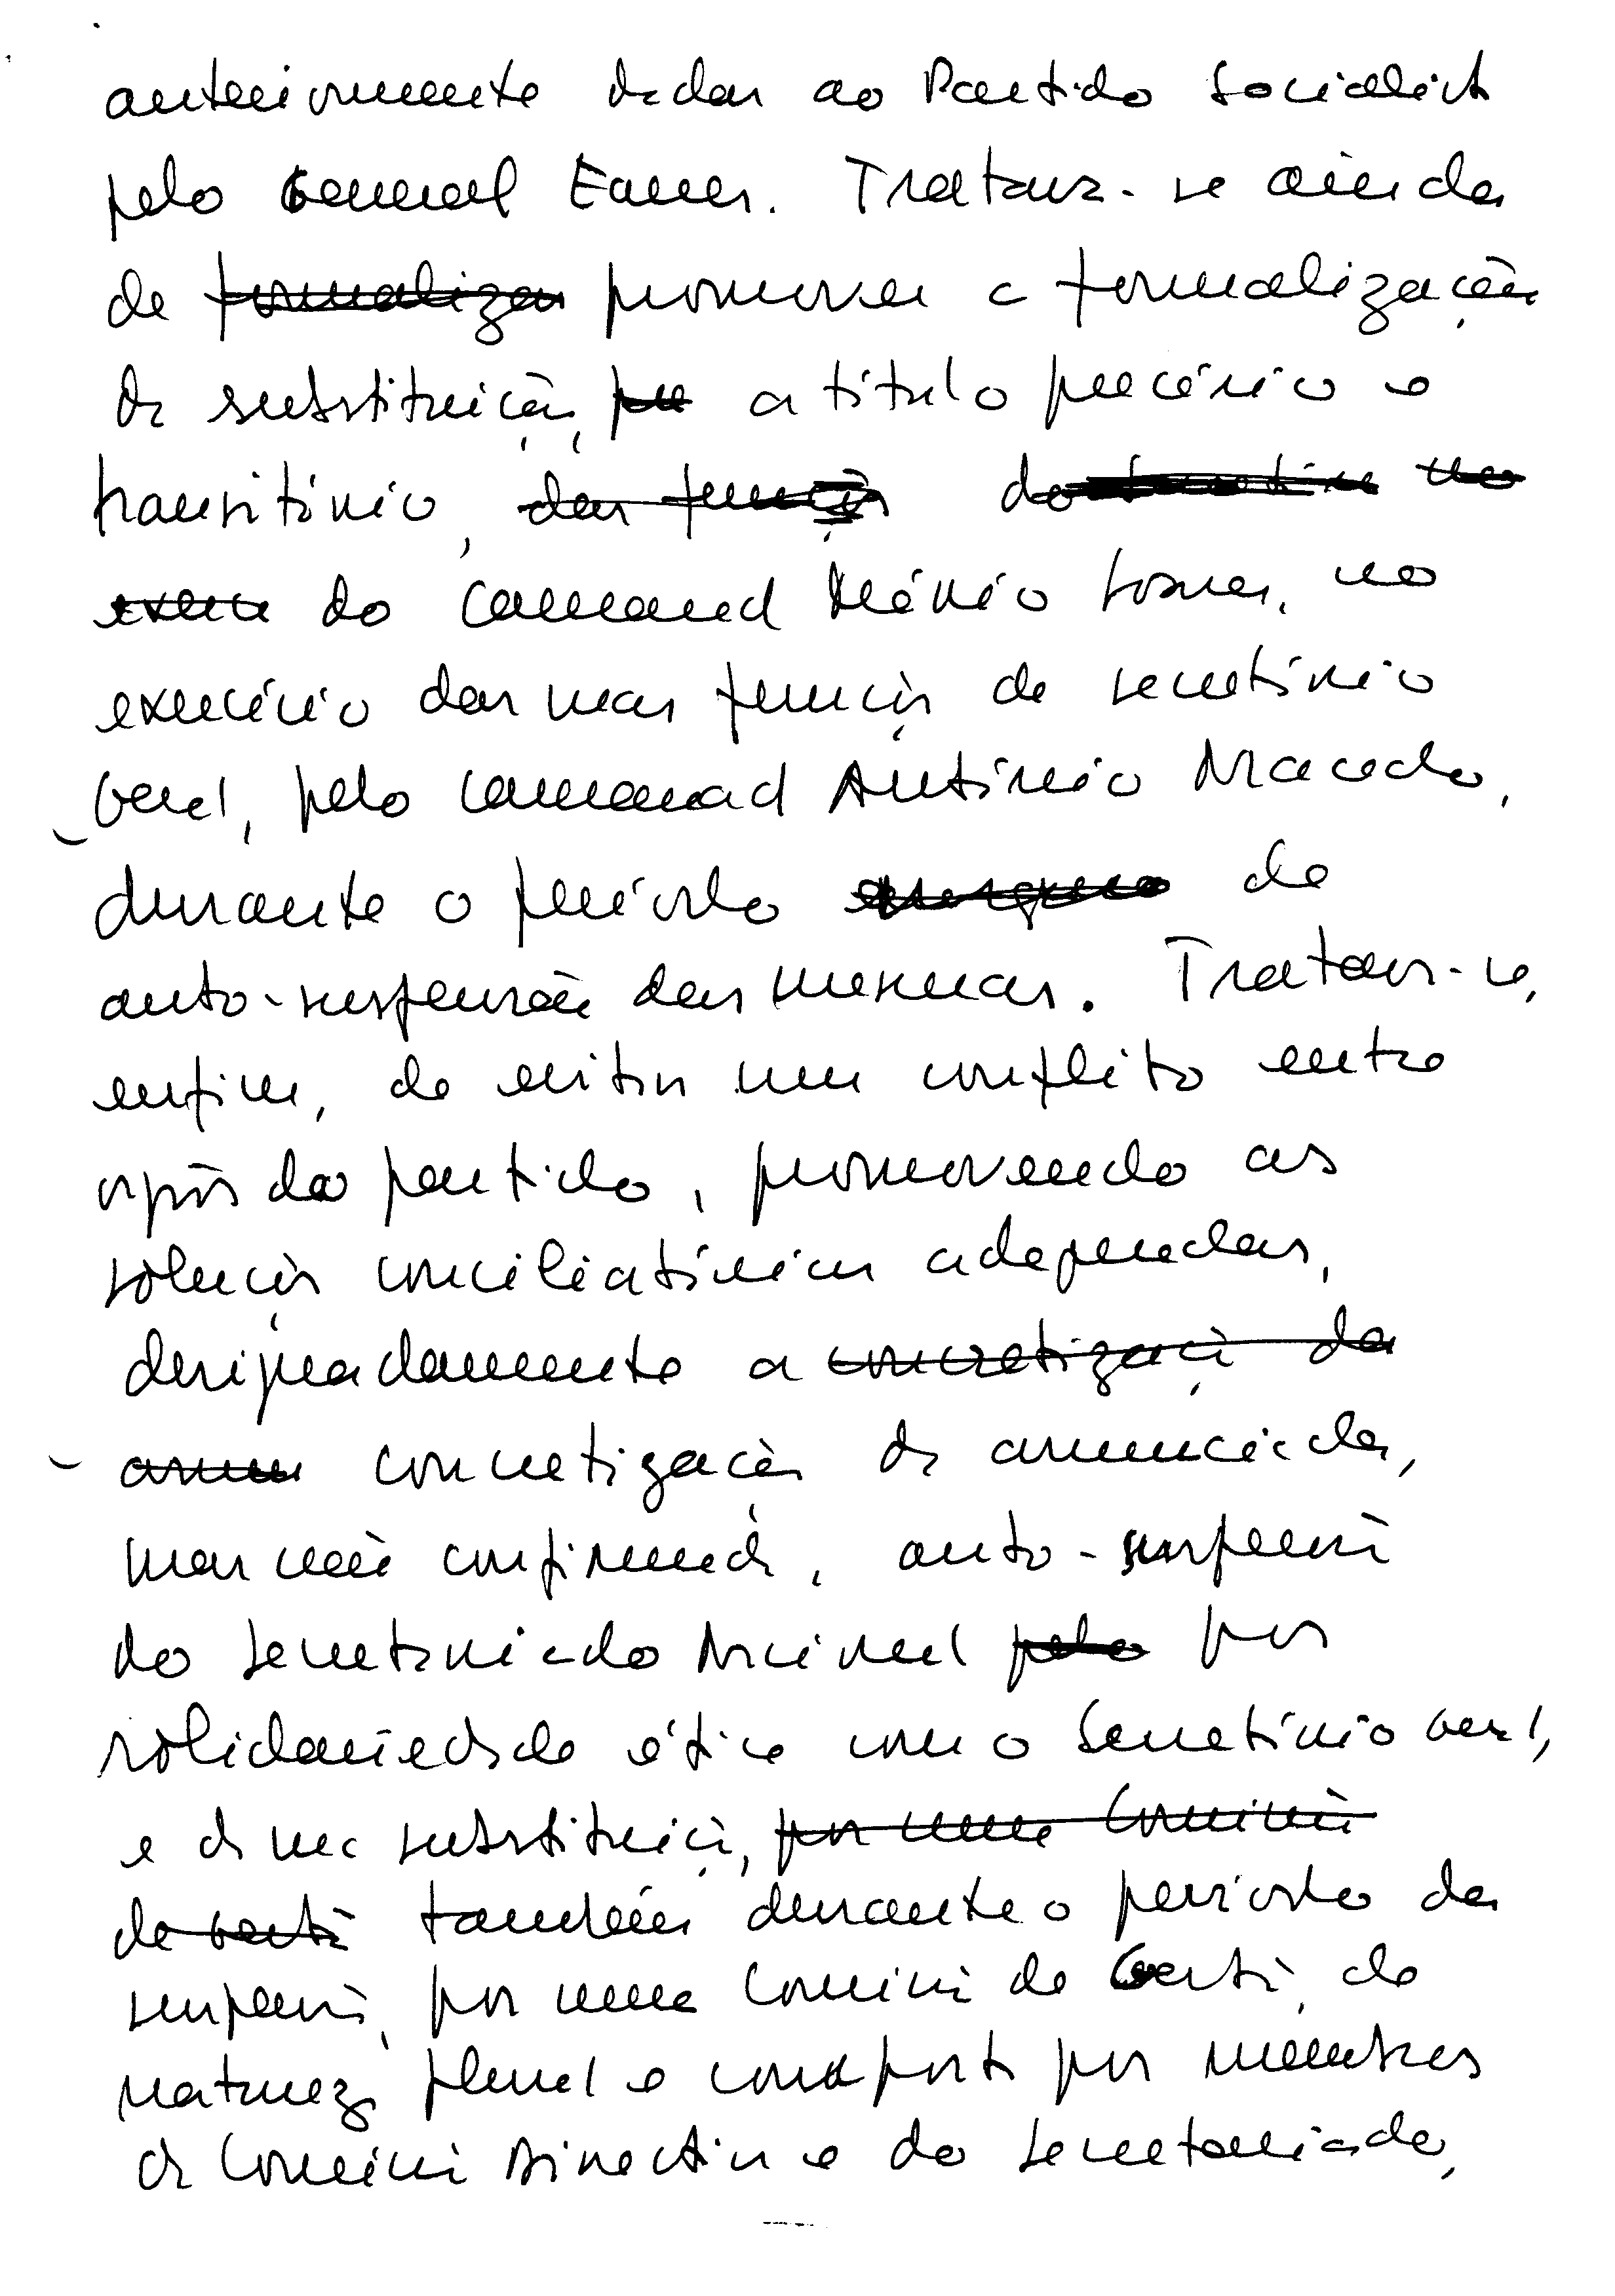 anteriormente dadas ao Partido Socialista
pelo General Eanes. Tratava-se ainda
de formalizar promover a formalização
da substituição, a título precário e
transitório, das funções do
do camarada Mário Soares, no
exercício das suas funções de secretário
Geral, pelo camarada António Macedo,
durante o período de
auto-suspensão das mesmas. Tratava-se,
enfim, de evitar um conflito entre
orgãos do partido, promovendo as
soluções conciliatórias adequadas,
designadamente a concretização da
concretização da anunciada,
mas não confirmada, auto-suspensão
do Secretariado Nacional pelo por
solidariedade ética com o Secretário Geral,
e da sua substituição, por uma Comissão
de Gestão também durante o período da
suspensão, por uma Comissão de Gestão, de
natureza plural e composta por membros
da Comissão Directiva e do Secretariado,